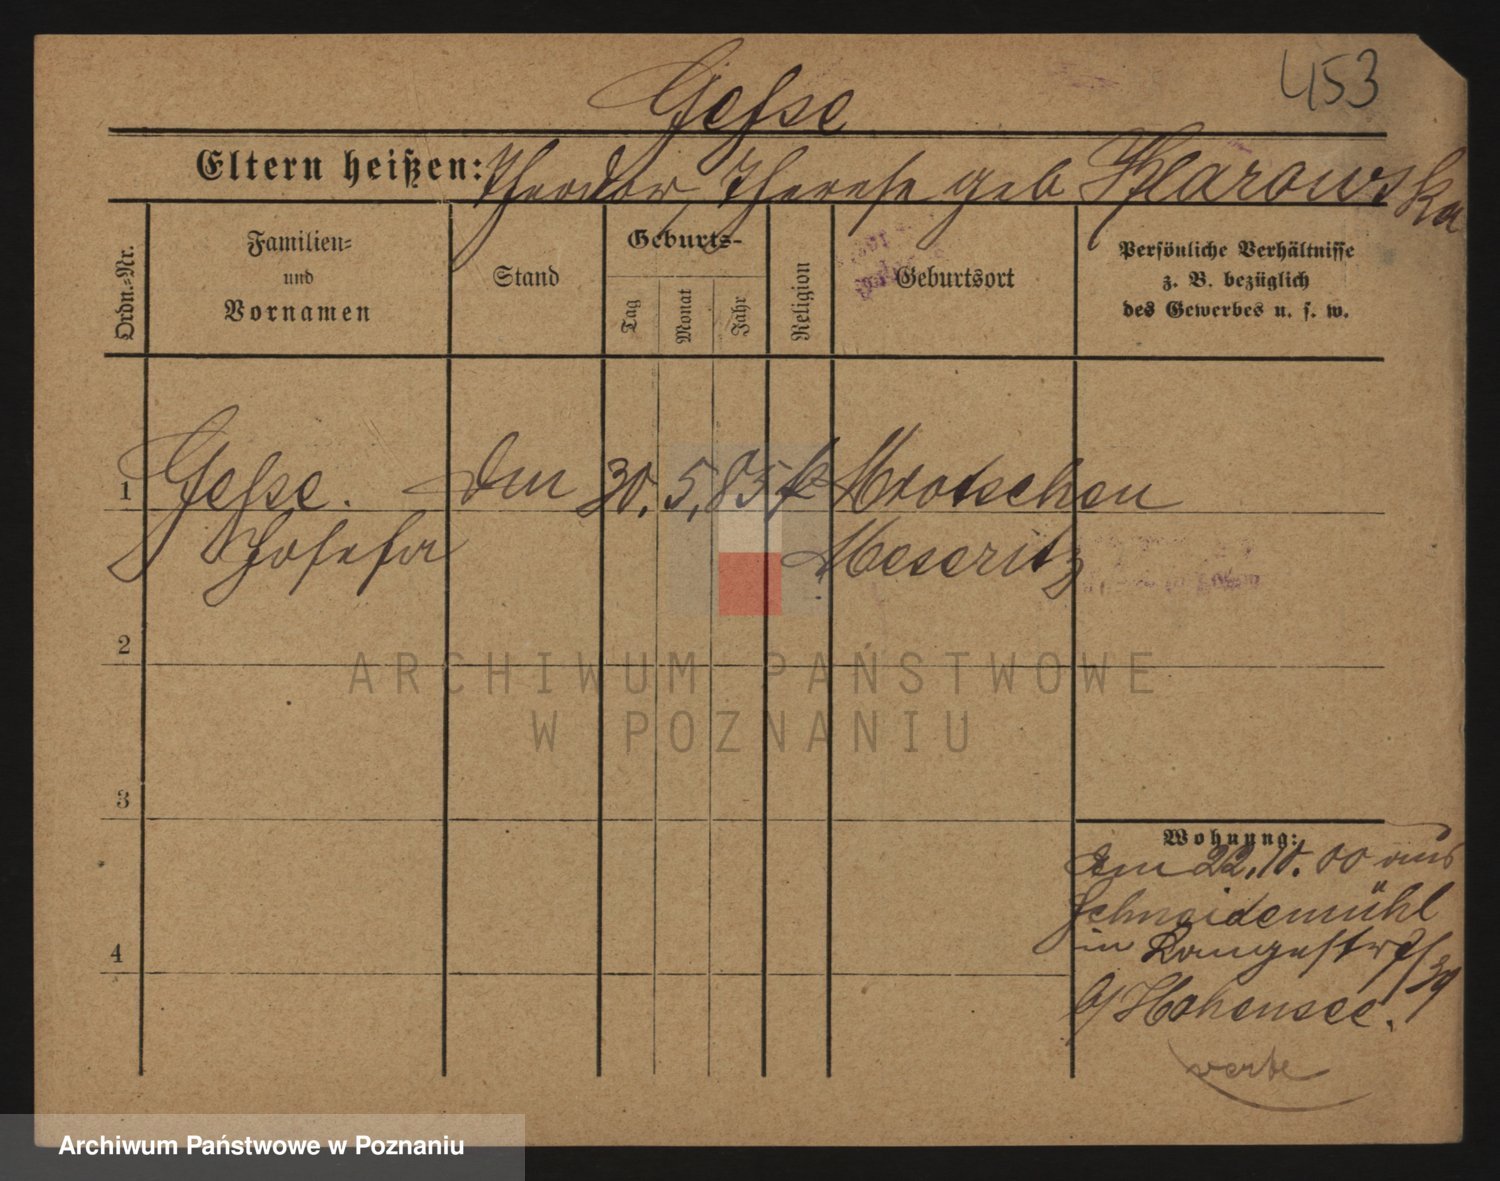 453
Gesse
Eltern heißen: Theodor, Therese geb
Ordn.-Nr.
Familien-
und
Vornamen
Stand
Geburts-
Tag
Monat
Jahr
Religion
Geburtsort
Persönliche Verhältnisse
z. B. bezüglich
des Gewerbes u. s. w.
1 Gesse. 30. 5. 85 k Mrotschen
Josefa Meseritz
2
ARCHIWUM PAŃSTWOWE
W POZNANIU
3
Wohnung:
22.10.00 aus
Schneidemühl
in
4
b/Hohensee.
Archiwum Państwowe w Poznaniu